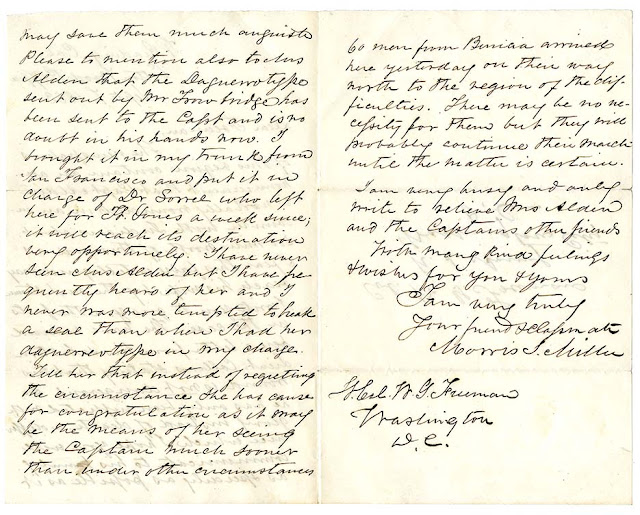 may save them much anguish
Please to mention also to Mrs
Alden that the Daguerreotype
sent out by Mr Trowbridge has
been sent to the Capt and is no
doubt in his hands now. I
brought it in my trunk from
San Francisco and put it in
charge of Dr Sorrel who left
here for Ft. Jones a week since;
it will reach its destination
very opportunely. I have never
seen Mrs Alden but I have fre
quently heard of her and I
never was more tempted to break
a seal than when I had her
daguerreotype in my charge.
Tell her that instead of regretting
the circumstance she has cause
for congratulation as it may
be the means of her seeing
the Captain much sooner
than under other circumstances
60 men from Benicia arrived
here yesterday on their way
north to the region of the dif-
ficulties. There may be no ne-
cessity for them but they will
probably continue their march
until the matter is certain.
I am very busy and only
write to relieve Mrs Alden
and the Captains other friends
With many kind feelings
& wishes for you & yours
I am very truly
Your friend & classmate
Morris S. Miller
Lt. Col. W. G. Freeman
Washington
D.C.